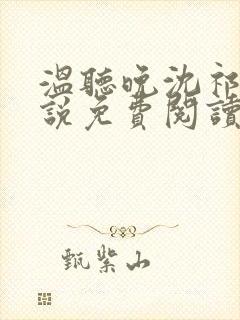 溫聽晚沈祁
說免費閱讀
甄紫山